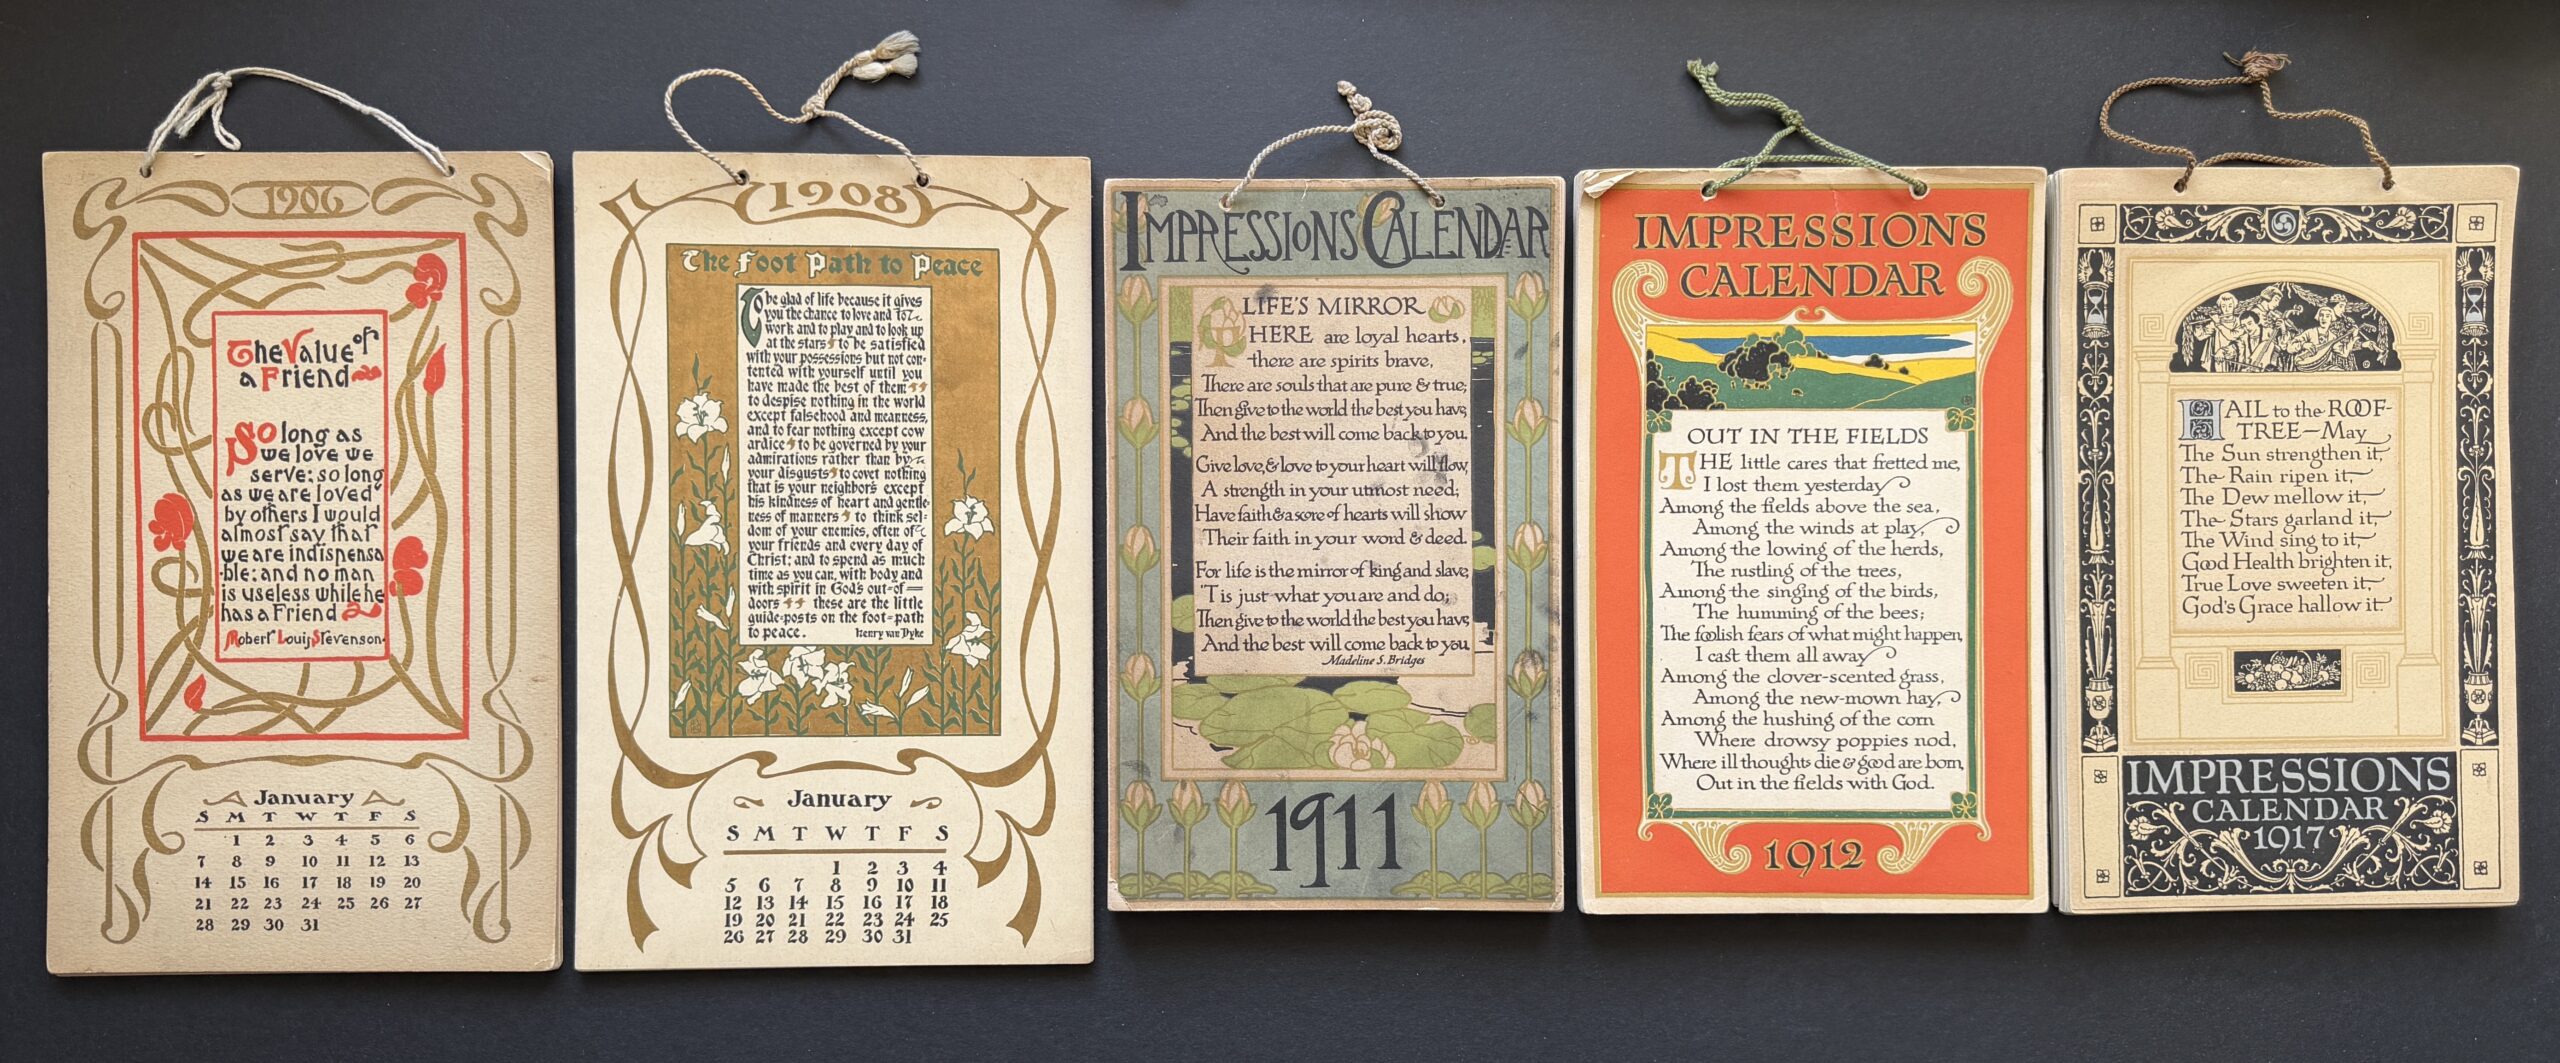 1906
The Value of
a Friend
So long as
we love we
serve: so long
as we are loved
by others I would
almost say that
we are indispensa
-ble: and no man
is useless while he
has a Friend
Robert Louis Stevenson.
January
S M T W T F S
1 2 3 4 5 6
7 8 9 10 11 12 13
14 15 16 17 18 19 20
21 22 23 24 25 26 27
28 29 30 31
1908
The Foot Path to Peace
To be glad of life because it gives
you the chance to love and to
work and to play and to look up
at the stars to be satisfied
with your possessions but not con-
tented with yourself until you
have made the best of them
to despise nothing in the world
except falsehood and meanness,
and to fear nothing except cow
ardice to be governed by your
admirations rather than by
your disgusts to covet nothing
that is your neighbor's except
his kindness of heart and gentle-
ness of manners to think sel-
dom of your enemies, often of
your friends and every day of
Christ: and to spend as much
time as you can, with body and
with spirit in God's out-of=
doors these are the little
guide-posts on the foot-path
to peace. Henry van Dyke
January
S M T W T F S
1 2 3 4
5 6 7 8 9 10 11
12 13 14 15 16 17 18
19 20 21 22 23 24 25
26 27 28 29 30 31
IMPRESSIONS CALENDAR
LIFE'S MIRROR
HERE are loyal hearts,
there are spirits brave,
There are souls that are pure & true;
Then give to the world the best you have,
And the best will come back to you.
Give love, & love to your heart will flow,
A strength in your utmost need;
Have faith & a score of hearts will show
Their faith in your word & deed.
For life is the mirror of king and slave,
'Tis just what you are and do;
Then give to the world the best you have,
And the best will come back to you.
Madeline S. Bridges
1911
IMPRESSIONS
CALENDAR
OUT IN THE FIELDS
THE little cares that fretted me,
I lost them yesterday
Among the fields above the sea,
Among the winds at play,
Among the lowing of the herds,
The rustling of the trees,
Among the singing of the birds,
The humming of the bees;
The foolish fears of what might happen,
I cast them all away
Among the clover-scented grass,
Among the new-mown hay,
Among the hushing of the corn
Where drowsy poppies nod,
Where ill thoughts die & good are born,
Out in the fields with God.
1912
HAIL to the ROOF-
TREE—May
The Sun strengthen it,
The Rain ripen it,
The Dew mellow it,
The Stars garland it,
The Wind sing to it,
Good Health brighten it,
True Love sweeten it,
God's Grace hallow it
IMPRESSIONS
CALENDAR
1917